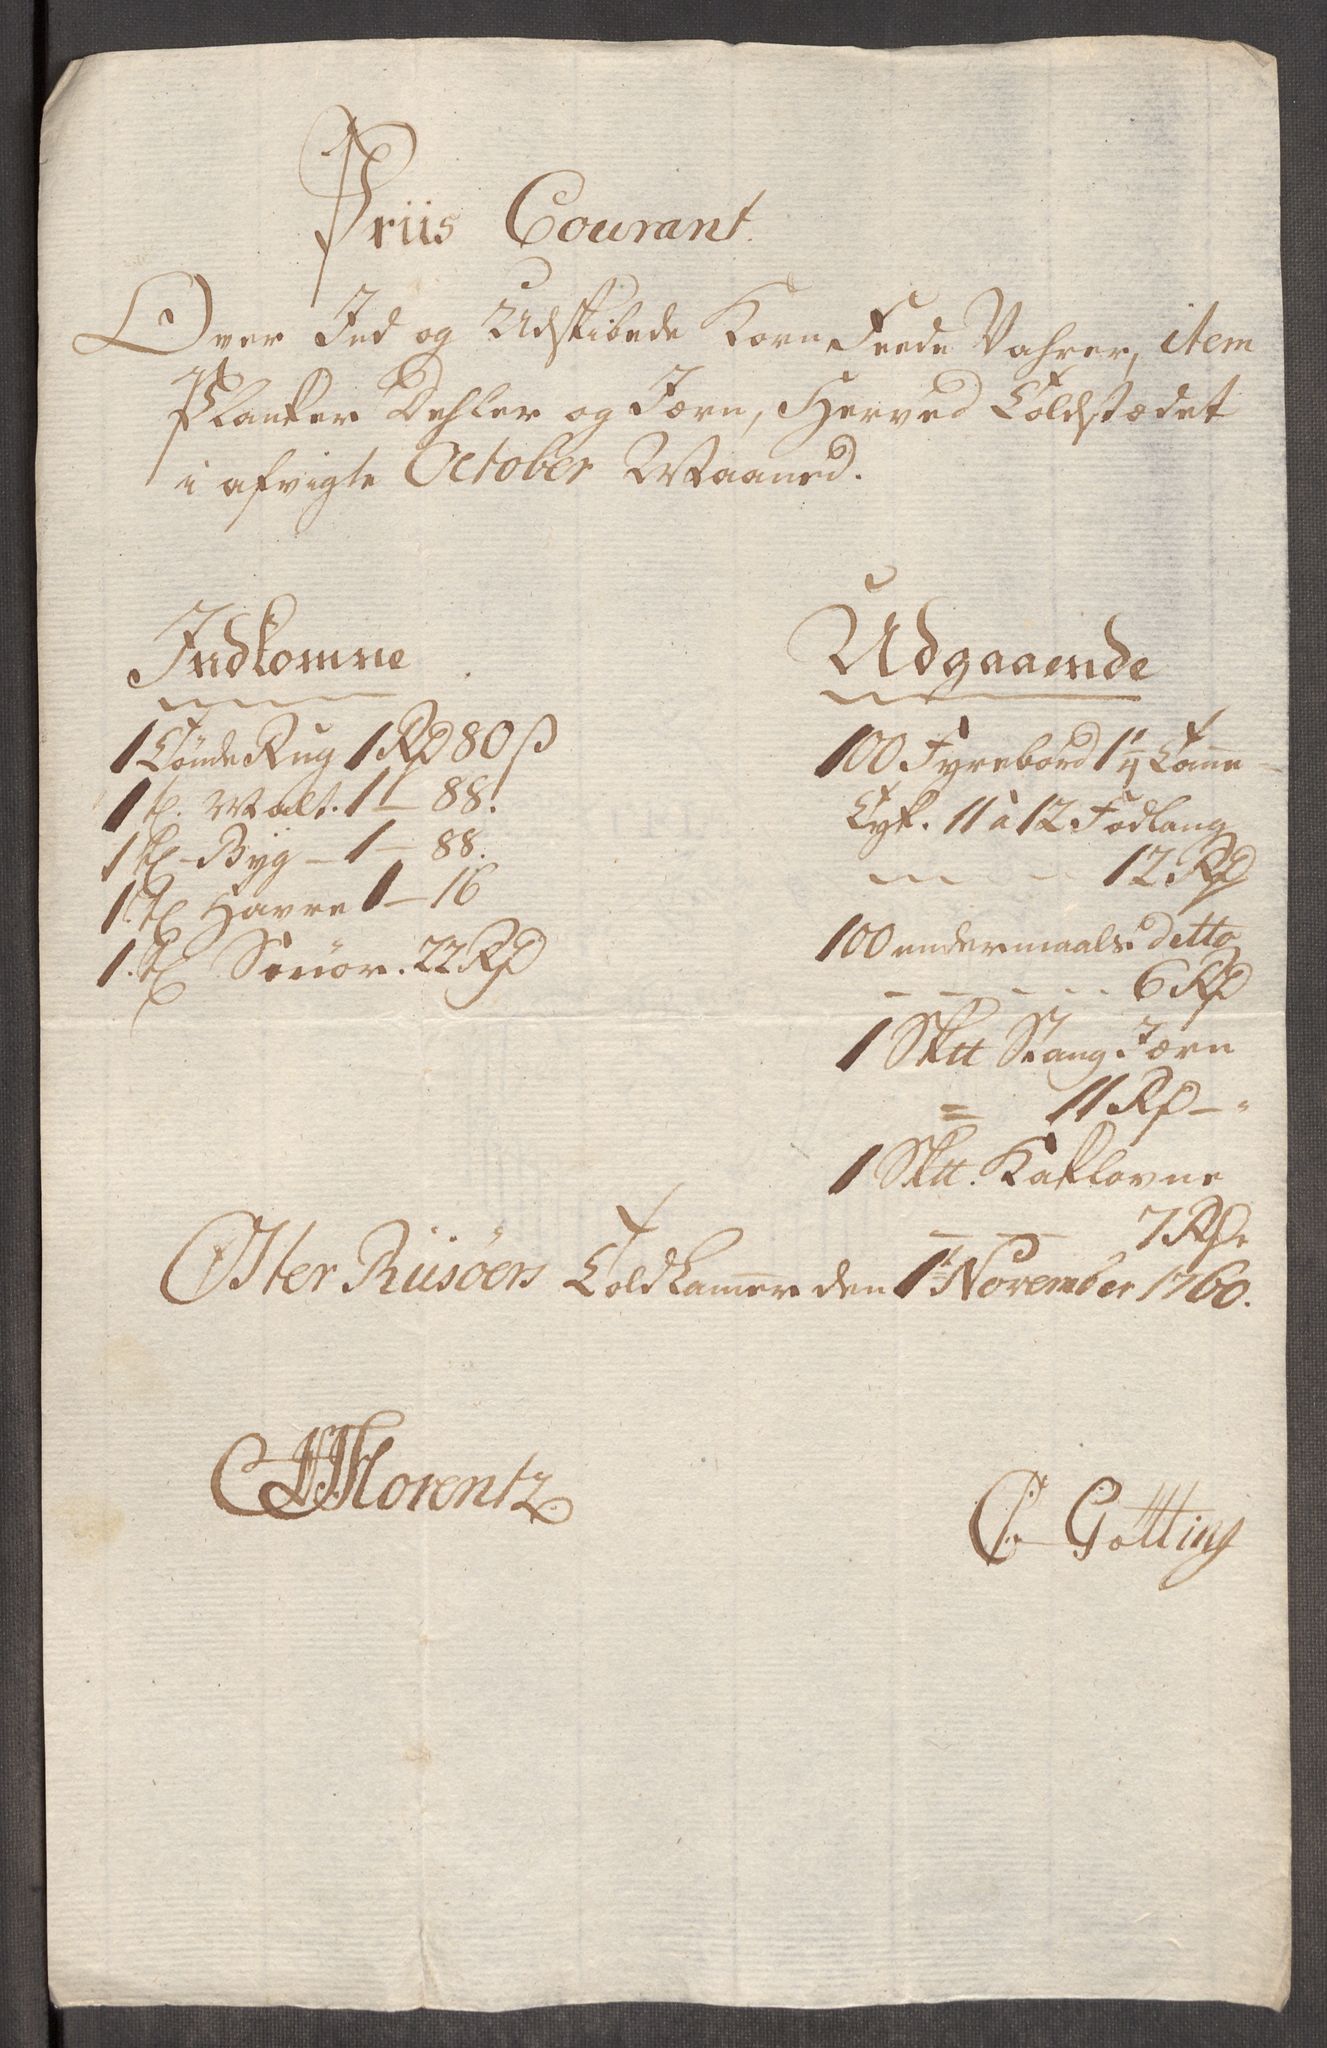 Priis Courant.
Over Ind og Udskibede Korn Feede Vahrer, item
Planker Dehler og Jærn, Herved Toldstædet
i afvigte October Maaned.
Indkomne
1 Tönde Rug 1 Rd 80 ß
1 t. Malt. 1 — 88.
1 t. Byg — 1 — 88.
1 t. Havre 1 — 16
1. t. Smör. 22 Rd
Udgaaende
100 Fyrebord 1 1/4 Tomme
Tyk. 11 à 12 Fod lang
12 Rd
100 undermaals detto
6 Rd
1 Sktt Stang Jærn
= 11 Rd —
1 Sktt. Kaklovne
7 Rd.
Öster Riisöers Toldkammer den 1 November 1760.
Florentz
C. Gotting